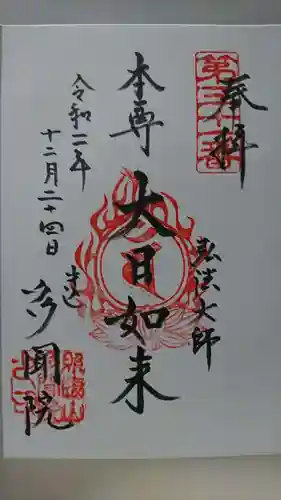 奉拝
第三十一番
弘法大師
本尊
大日如来
令和二年
十二月二十四日
多聞院